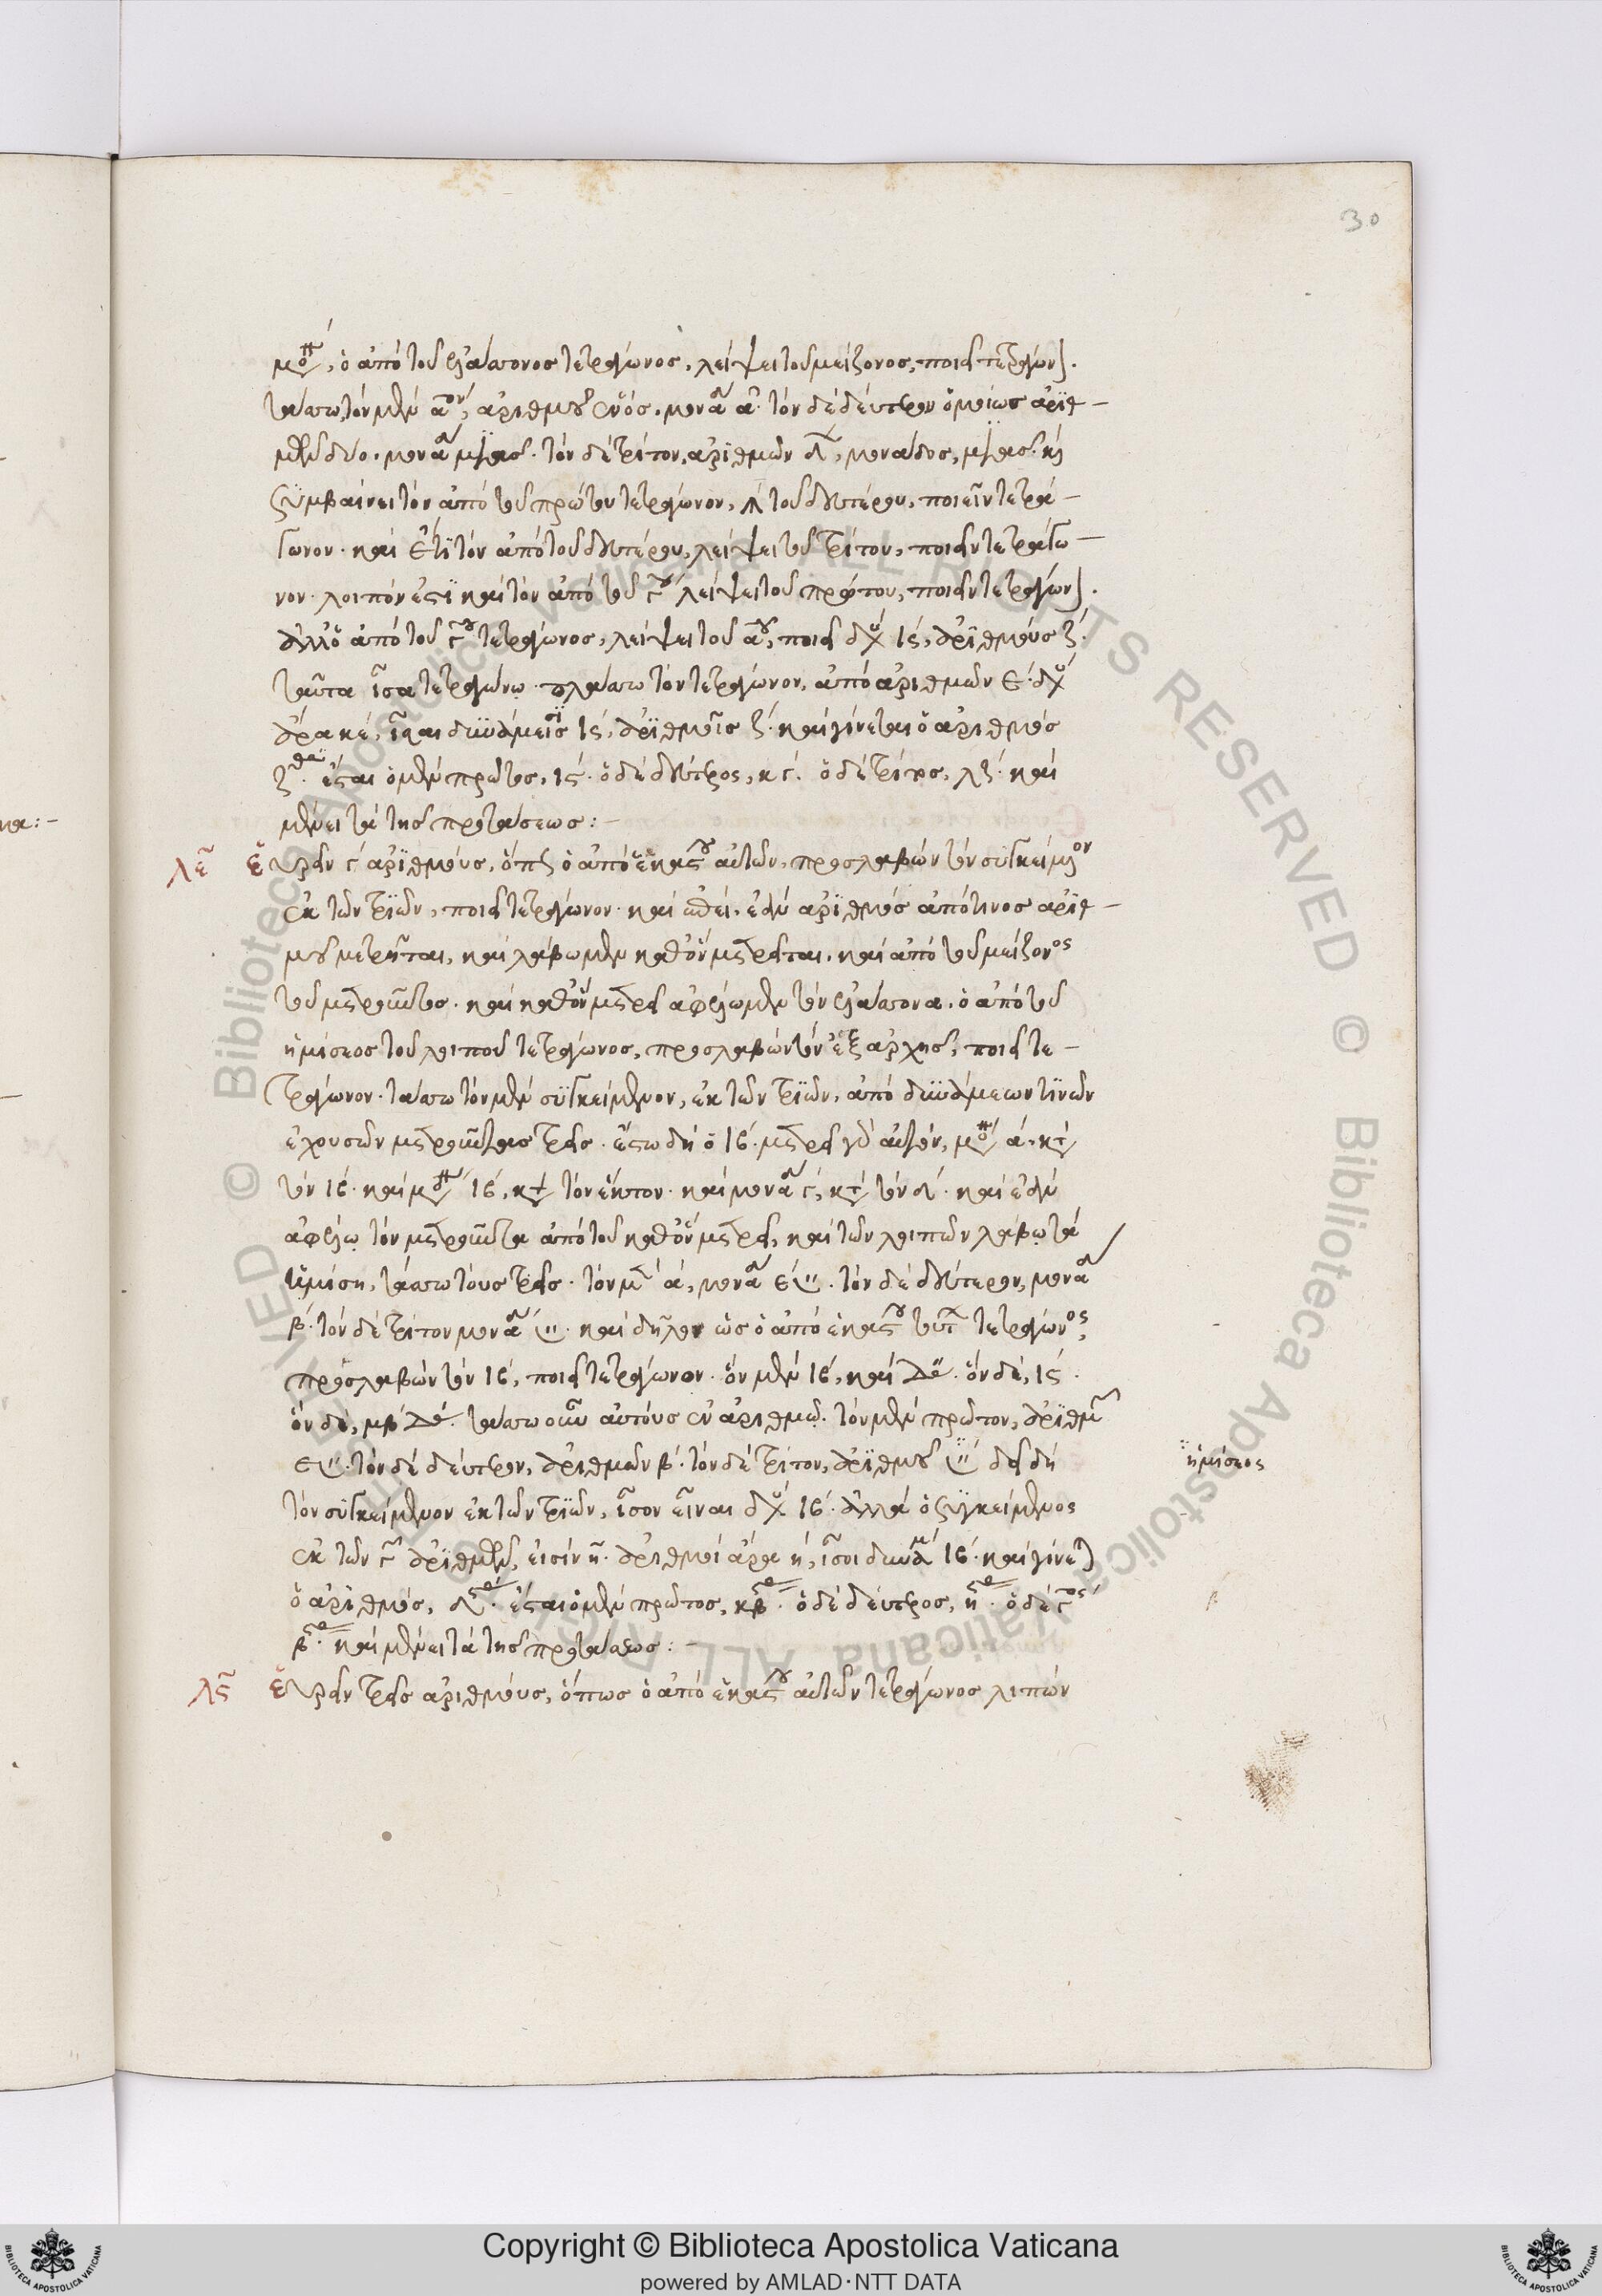 30
μο^π, ὁ ἀπὸ τοῦ ἐλάσσονος τετράγωνος, λείψει τοῦ μείζονος, ποιεῖ τετράγων].
τάσσω τὸν μὲν α^ον, ἀριθμοῦ ἑνός, μονα α. τὸν δὲ δεύτερον ὁμοίως ἀριθ-
μῶν δύο, μονα μιᾶς. τὸν δὲ τρίτον, ἀριθμῶν δ, μονάδος μιᾶς. κ
συμβαίνει τὸν ἀπὸ τοῦ πρώτου τετράγωνον, λ τοῦ δευτέρου, ποιεῖν τετρά-
γωνον. καὶ ἔτι τὸν ἀπὸ τοῦ δευτέρου, λείψει τοῦ τρίτου, ποιεῖν τετράγω-
νον. λοιπόν ἐστι καὶ τὸν ἀπὸ τοῦ γ^ου λείψει τοῦ πρώτου, ποιεῖν τετράγων].
ἀλλ' ὁ ἀπὸ τοῦ γ^ου τετράγωνος, λείψει τοῦ α^ου, ποιεῖ δυ ις, ἀριθμοὺς ζ.
ταῦτα ἴσα τετραγώνῳ. πλάσσω τὸν τετράγωνον, ἀπὸ ἀριθμῶν ε. δυ
ἄρα κε, ἴσαι δυνάμεσι ις, ἀριθμοῖς ζ. καὶ γίνεται ὁ ἀριθμὸς
ζ^θα. ἔσται ὁ μὲν πρῶτος, ις. ὁ δὲ δεύτερος, κγ. ὁ δὲ τρίτος, λζ. καὶ
μένει τὰ τῆς προτάσεως:-
λε εὑρεῖν γ ἀριθμούς, ὅπως ὁ ἀπὸ ἑκάστου αὐτῶν, προσλαβὼν τὸν συγκείμενον
ἐκ τῶν τριῶν, ποιεῖ τετράγωνον. καὶ ἐπεὶ, ἐὰν ἀριθμὸς ἀπό τινος ἀριθ-
μοῦ μετρῆται, καὶ λάβωμεν καθ' ὃν μετρεῖται, καὶ ἀπὸ τοῦ μείζονος
τοῦ μετροῦντος. καὶ καθ' ὃν μετρεῖ ἀφέλωμεν τὸν ἐλάσσονα. ὁ ἀπὸ τοῦ
ἡμίσεος τοῦ λοιποῦ τετράγωνος, προσλαβὼν τὸν ἐξ ἀρχῆς, ποιεῖ τε-
τράγωνον. τάσσω τὸν μὲν συγκείμενον, ἐκ τῶν τριῶν, ἀπὸ δυνάμεων τινῶν
ἐχουσῶν μετροῦντας τρεῖς. ἔστω δὴ ὁ ιβ. μετρεῖ γὰρ αὐτόν, μο α, κτ
τὸν ιβ. καὶ μο ιβ, κτ τὸν ἕκτον. καὶ μονα γ, κτ τὸν δ. καὶ ἐὰν
ἀφέλω τὸν μετροῦντα ἀπὸ τοῦ καθ' ὃν μετρεῖ, καὶ τῶν λοιπῶν λάβω τὰ
ἡμίση, τάσσω τοὺς τρεῖς. τὸν μ α, μονα ε𐅵. τὸν δὲ δεύτερον, μονα
β. τὸν δὲ τρίτον μονα 𐅵. καὶ δῆλον ὡς ὁ ἀπὸ ἑκάστου τούτ τετράγωνος,
προσλαβὼν τὸν ιβ, ποιεῖ τετράγωνον. ὃν μὲν ιβ, καὶ δ. ὃν δὲ, ις.
ὃν δὲ, μβ δ. τάσσω οὖν αὐτοὺς ἐν ἀριθμῷ. τὸν μὲν πρῶτον, ἀριθμ
ε𐅵. τὸν δὲ δεύτερον, ἀριθμῶν β. τὸν δὲ τρίτον, ἀριθμοῦ 𐅵 δεῖ δὴ
ἡμίσεος
τὸν συγκείμενον ἐκ τῶν τριῶν, ἴσον εἶναι δυ ιβ. ἀλλὰ ὁ συγκείμενος
ἐκ τῶν γ ἀριθμῶν, εἰσὶν η. ἀριθμοὶ ἄρα η, ἴσοι δυνάμ ιβ. καὶ γίνετ
ὁ ἀριθμός, δ. ἔσται ὁ μὲν πρῶτος, κβ. ὁ δὲ δεύτερος, η. ὁ δὲ γ^ος
β. καὶ μένει τὰ τῆς προτάσεως:-
λς εὑρεῖν τρεῖς ἀριθμούς, ὅπως ὁ ἀπὸ ἑκάστου αὐτῶν τετράγωνος λιπὼν
Copyright © Biblioteca Apostolica Vaticana
powered by AMLAD·NTT DATA